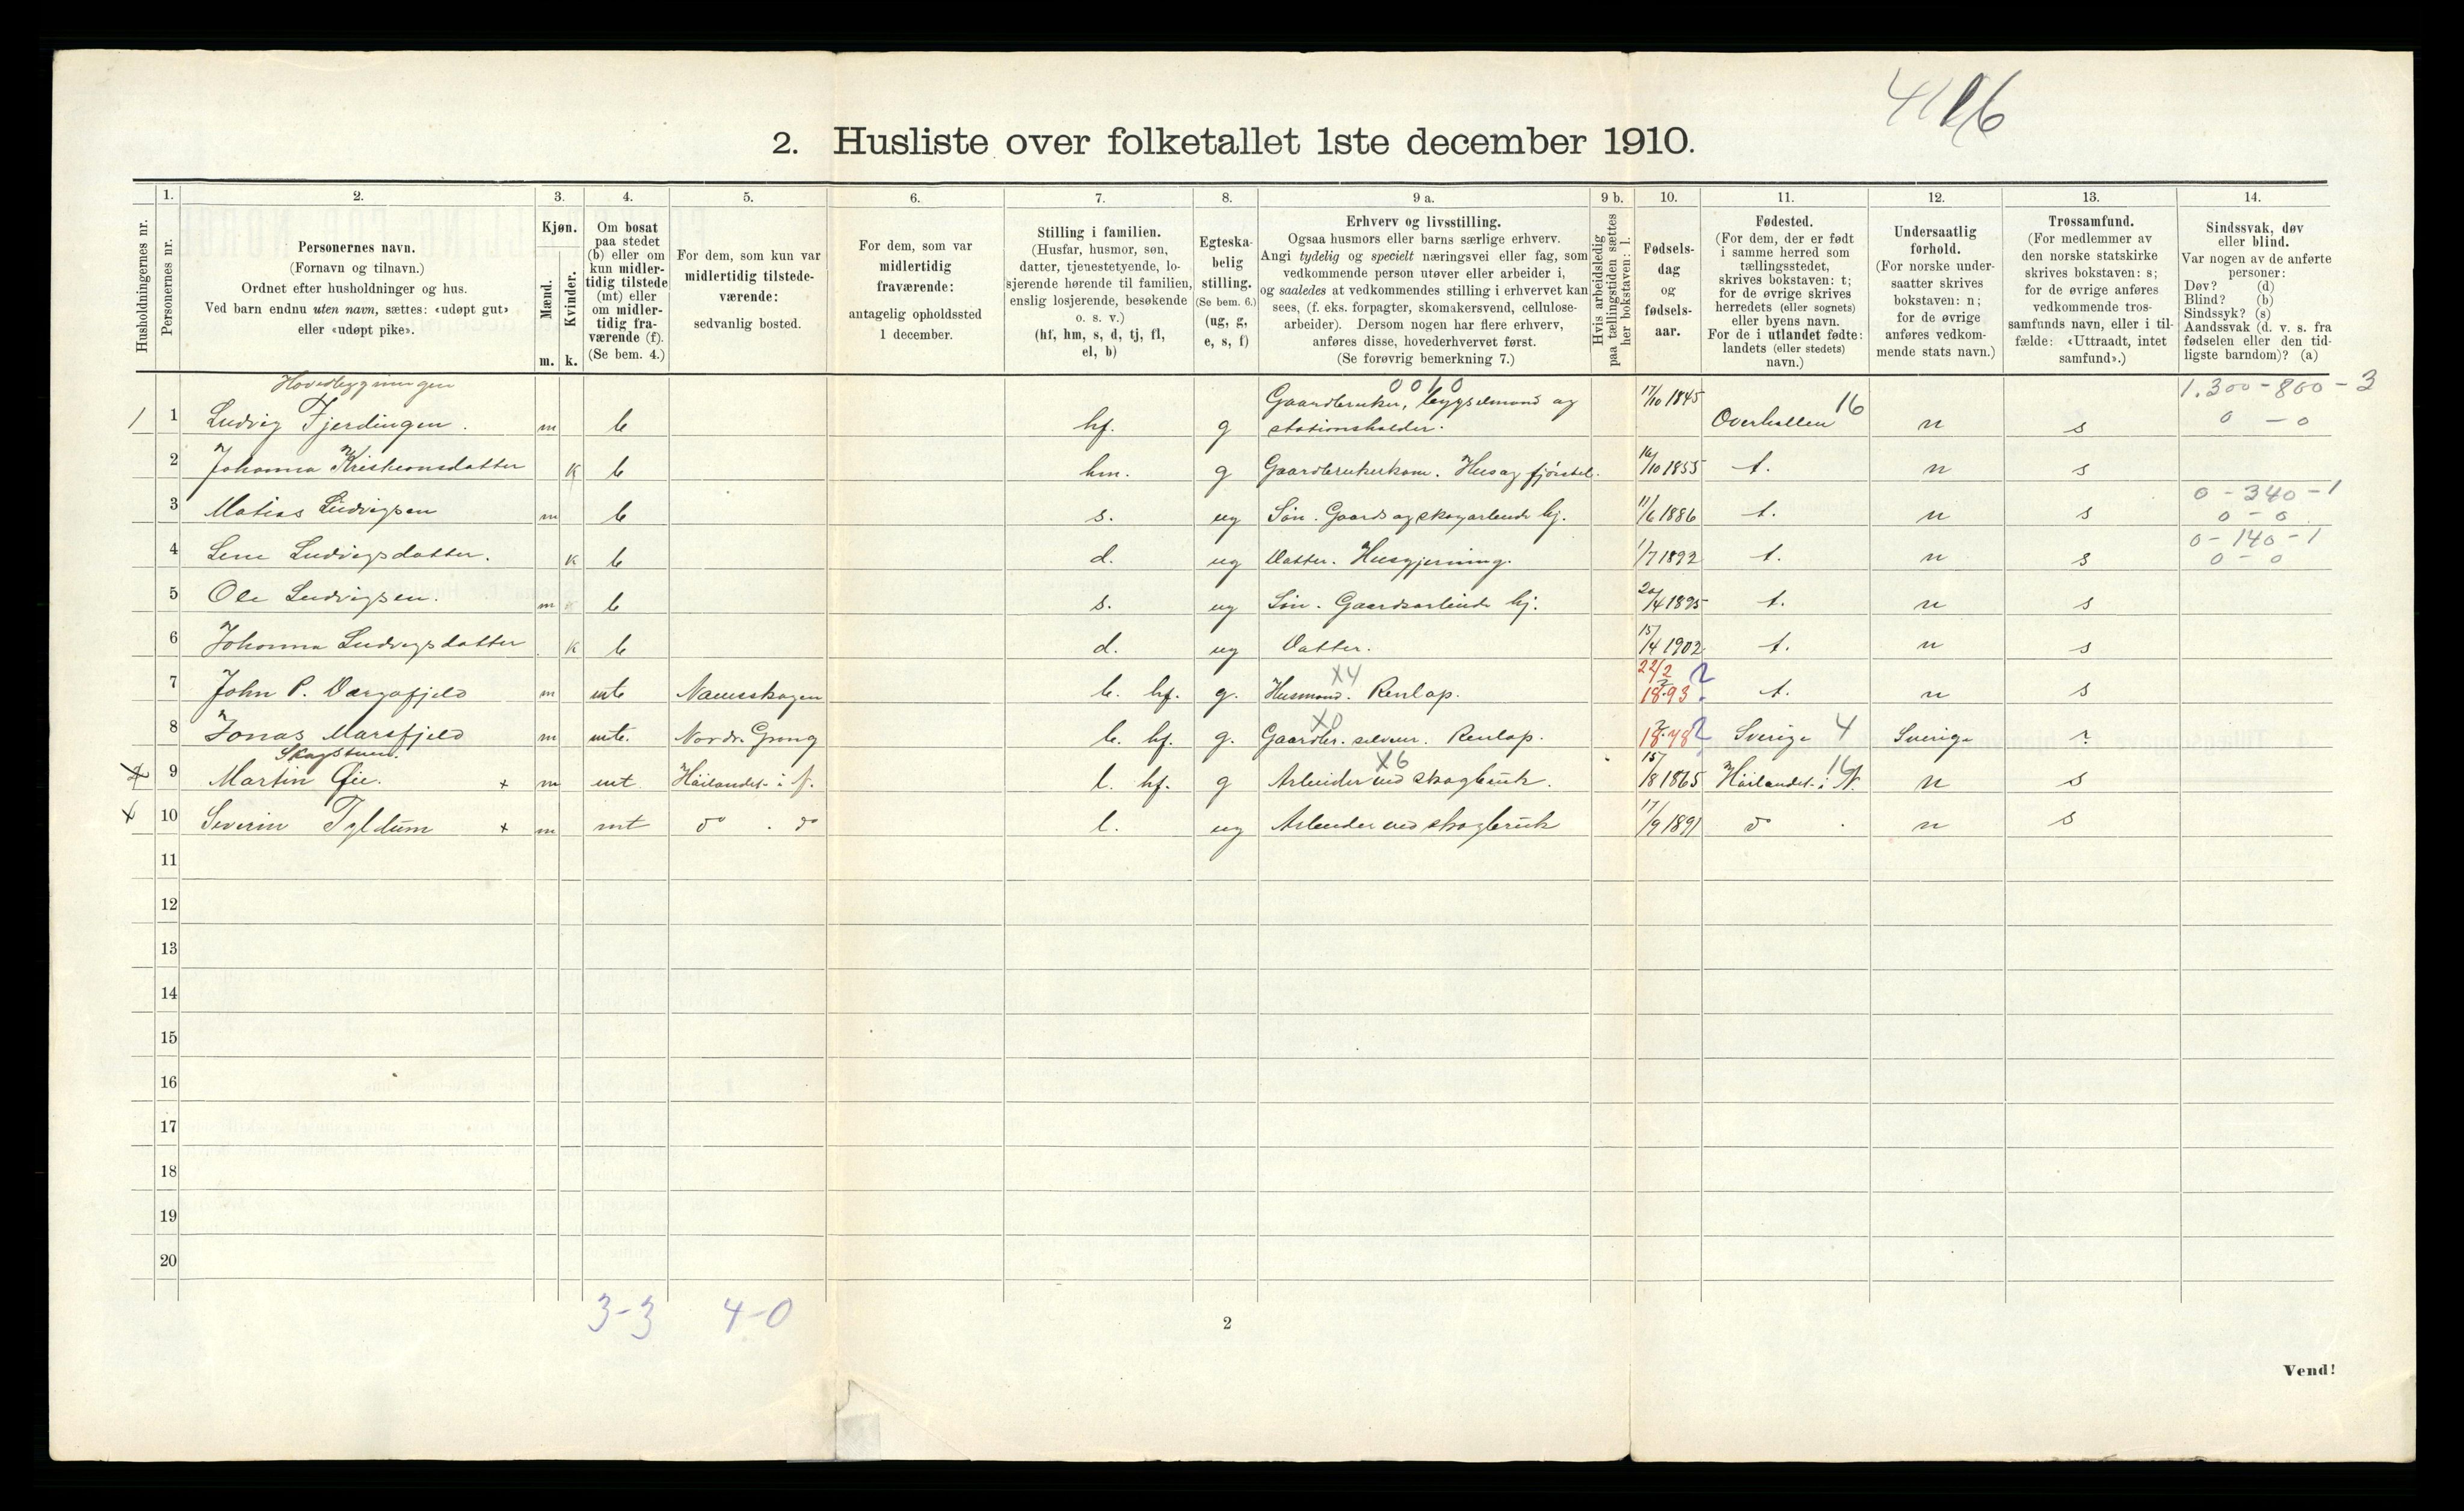 2. Husliste over folketallet 1ste december 1910.
Husholdningernes nr.
1.
Personernes nr.
2.
Personernes navn.
(Fornavn og tilnavn.)
Ordnet efter husholdninger og hus.
Ved barn endnu uten navn, sættes: «udøpt gut»
eller «udøpt pike».
3.
Kjøn.
Mænd.
Kvinder.
m. k.
4.
Om bosat
paa stedet
(b) eller om
kun midler-
tidig tilstede
(mt) eller
om midler-
tidig fra-
værende (f).
(Se bem. 4.)
5.
For dem, som kun var
midlertidig tilstede-
værende:
sedvanlig bosted.
6.
For dem, som var
midlertidig
fraværende:
antagelig opholdssted
1 december.
7.
Stilling i familien.
(Husfar, husmor, søn,
datter, tjenestetyende, lo-
sjerende hørende til familien,
enslig losjerende, besøkende
o. s. v.)
(hf, hm, s, d, tj, fl,
el, b)
8.
Egteska-
belig
stilling.
(Se bem. 6.)
(ug, g,
e, s, f)
9 a.
Erhverv og livsstilling.
Ogsaa husmors eller barns særlige erhverv.
Angi tydelig og specielt næringsvei eller fag, som
vedkommende person utøver eller arbeider i,
og saaledes at vedkommendes stilling i erhvervet kan
sees, (f. eks. forpagter, skomakersvend, cellulose-
arbeider). Dersom nogen har flere erhverv,
anføres disse, hovederhvervet først.
(Se forøvrig bemerkning 7.)
9 b.
Hvis arbeidsledig
paa tællingstiden sættes
her bokstaven: l.
10.
Fødsels-
dag
og
fødsels-
aar.
11.
Fødested.
(For dem, der er født
i samme herred som
tællingsstedet,
skrives bokstaven: t;
for de øvrige skrives
herredets (eller sognets)
eller byens navn.
For de i utlandet fødte:
landets (eller stedets)
navn.)
12.
Undersaatlig
forhold.
(For norske under-
saatter skrives
bokstaven: n;
for de øvrige
anføres vedkom-
mende stats navn.)
13.
Trossamfund.
(For medlemmer av
den norske statskirke
skrives bokstaven: s;
for de øvrige anføres
vedkommende tros-
samfunds navn, eller i til-
fælde: «Uttraadt, intet
samfund».)
14.
Sindssvak, døv
eller blind.
Var nogen av de anførte
personer:
Døv? (d)
Blind? (b)
Sindssyk? (s)
Aandssvak (d. v. s. fra
fødselen eller den tid-
ligste barndom)? (a)
Hovedbygningen 0 0 1 0 1.300-800-3
1 1 Ludvig Fjerdingen. m b hf. g Gaardbruker, bygselmand og stationsholder. 17/10 1845 Overhallen 16 n s 0 - 0
2 Johanna Kristiansdatter k b hm. g Gaardbrukerkone. Hus og fjøsstel. 16/10 1855 t. n s
3 Matias Ludvigsen m b s. ug Søn. Gaards og skogarbeide hj. 11/6 1886 t. n s 0-340-1 0-0
4 Lene Ludvigsdatter. k b d. ug Datter. Husgjerning. 1/7 1892 t. n s 0-140-1 0-0
5 Ole Ludvigsen. m b s. ug Søn. Gaardsarbeide hj. 20/4 1895 t. n s
6 Johanna Ludvigsdatter k b d. ug Datter. 15/4 1902 t. n s
7 John P. m mt Namsskogen b. hf. g. Husmand. X4 Renlap. 22/2 1893 ? t. n s
8 Jonas Marsfjeld m mt. Nordr. Grong b. hf. g. X0 Renlap. ? Sverige 4 Sverige ?
Skogstuen.
9 Martin Øie. + m mt Höilandet i N. l. hf. g X6 Arbeider ved skogbruk. 15/8 1865 Höilandet i N. 16 n s
+ 10 Severin Tyldum + m mt do . do l. ug Arbeider ved skogbruk 17/9 1891 do . n s
11
12
13
14
15
16
17
18
19
20
3-3 4-0
2
Vend!